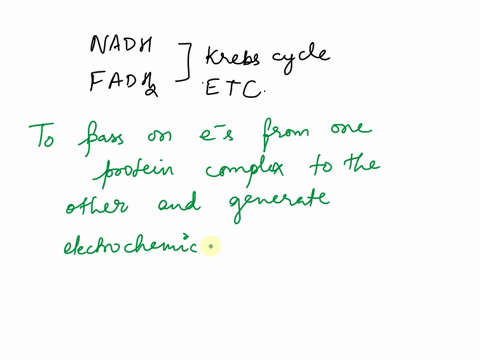 NADH
FADH2
] Krebs cycle
ETC.
To pass on e-s from one
protein complex to the
other and generate
electrochemic